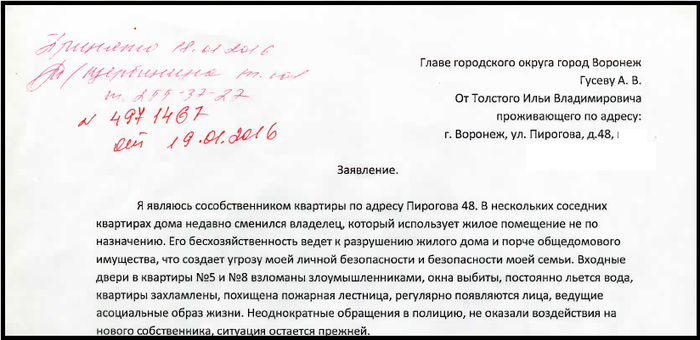 Принято 18.01.2016
Щербинина
т. 255-37-27
N 4971467
от 19.01.2016
Главе городского округа город Воронеж
Гусеву А. В.
От Толстого Ильи Владимировича
проживающего по адресу:
г. Воронеж, ул. Пирогова, д.48,
Заявление.
Я являюсь сособственником квартиры по адресу Пирогова 48. В нескольких соседних
квартирах дома недавно сменился владелец, который использует жилое помещение не по
назначению. Его бесхозяйственность ведет к разрушению жилого дома и порче общедомового
имущества, что создает угрозу моей личной безопасности и безопасности моей семьи. Входные
двери в квартиры №5 и №8 взломаны злоумышленниками, окна выбиты, постоянно льется вода,
квартиры захламлены, похищена пожарная лестница, регулярно появляются лица, ведущие
асоциальные образ жизни. Неоднократные обращения в полицию, не оказали воздействия на
нового собственника, ситуация остается прежней.